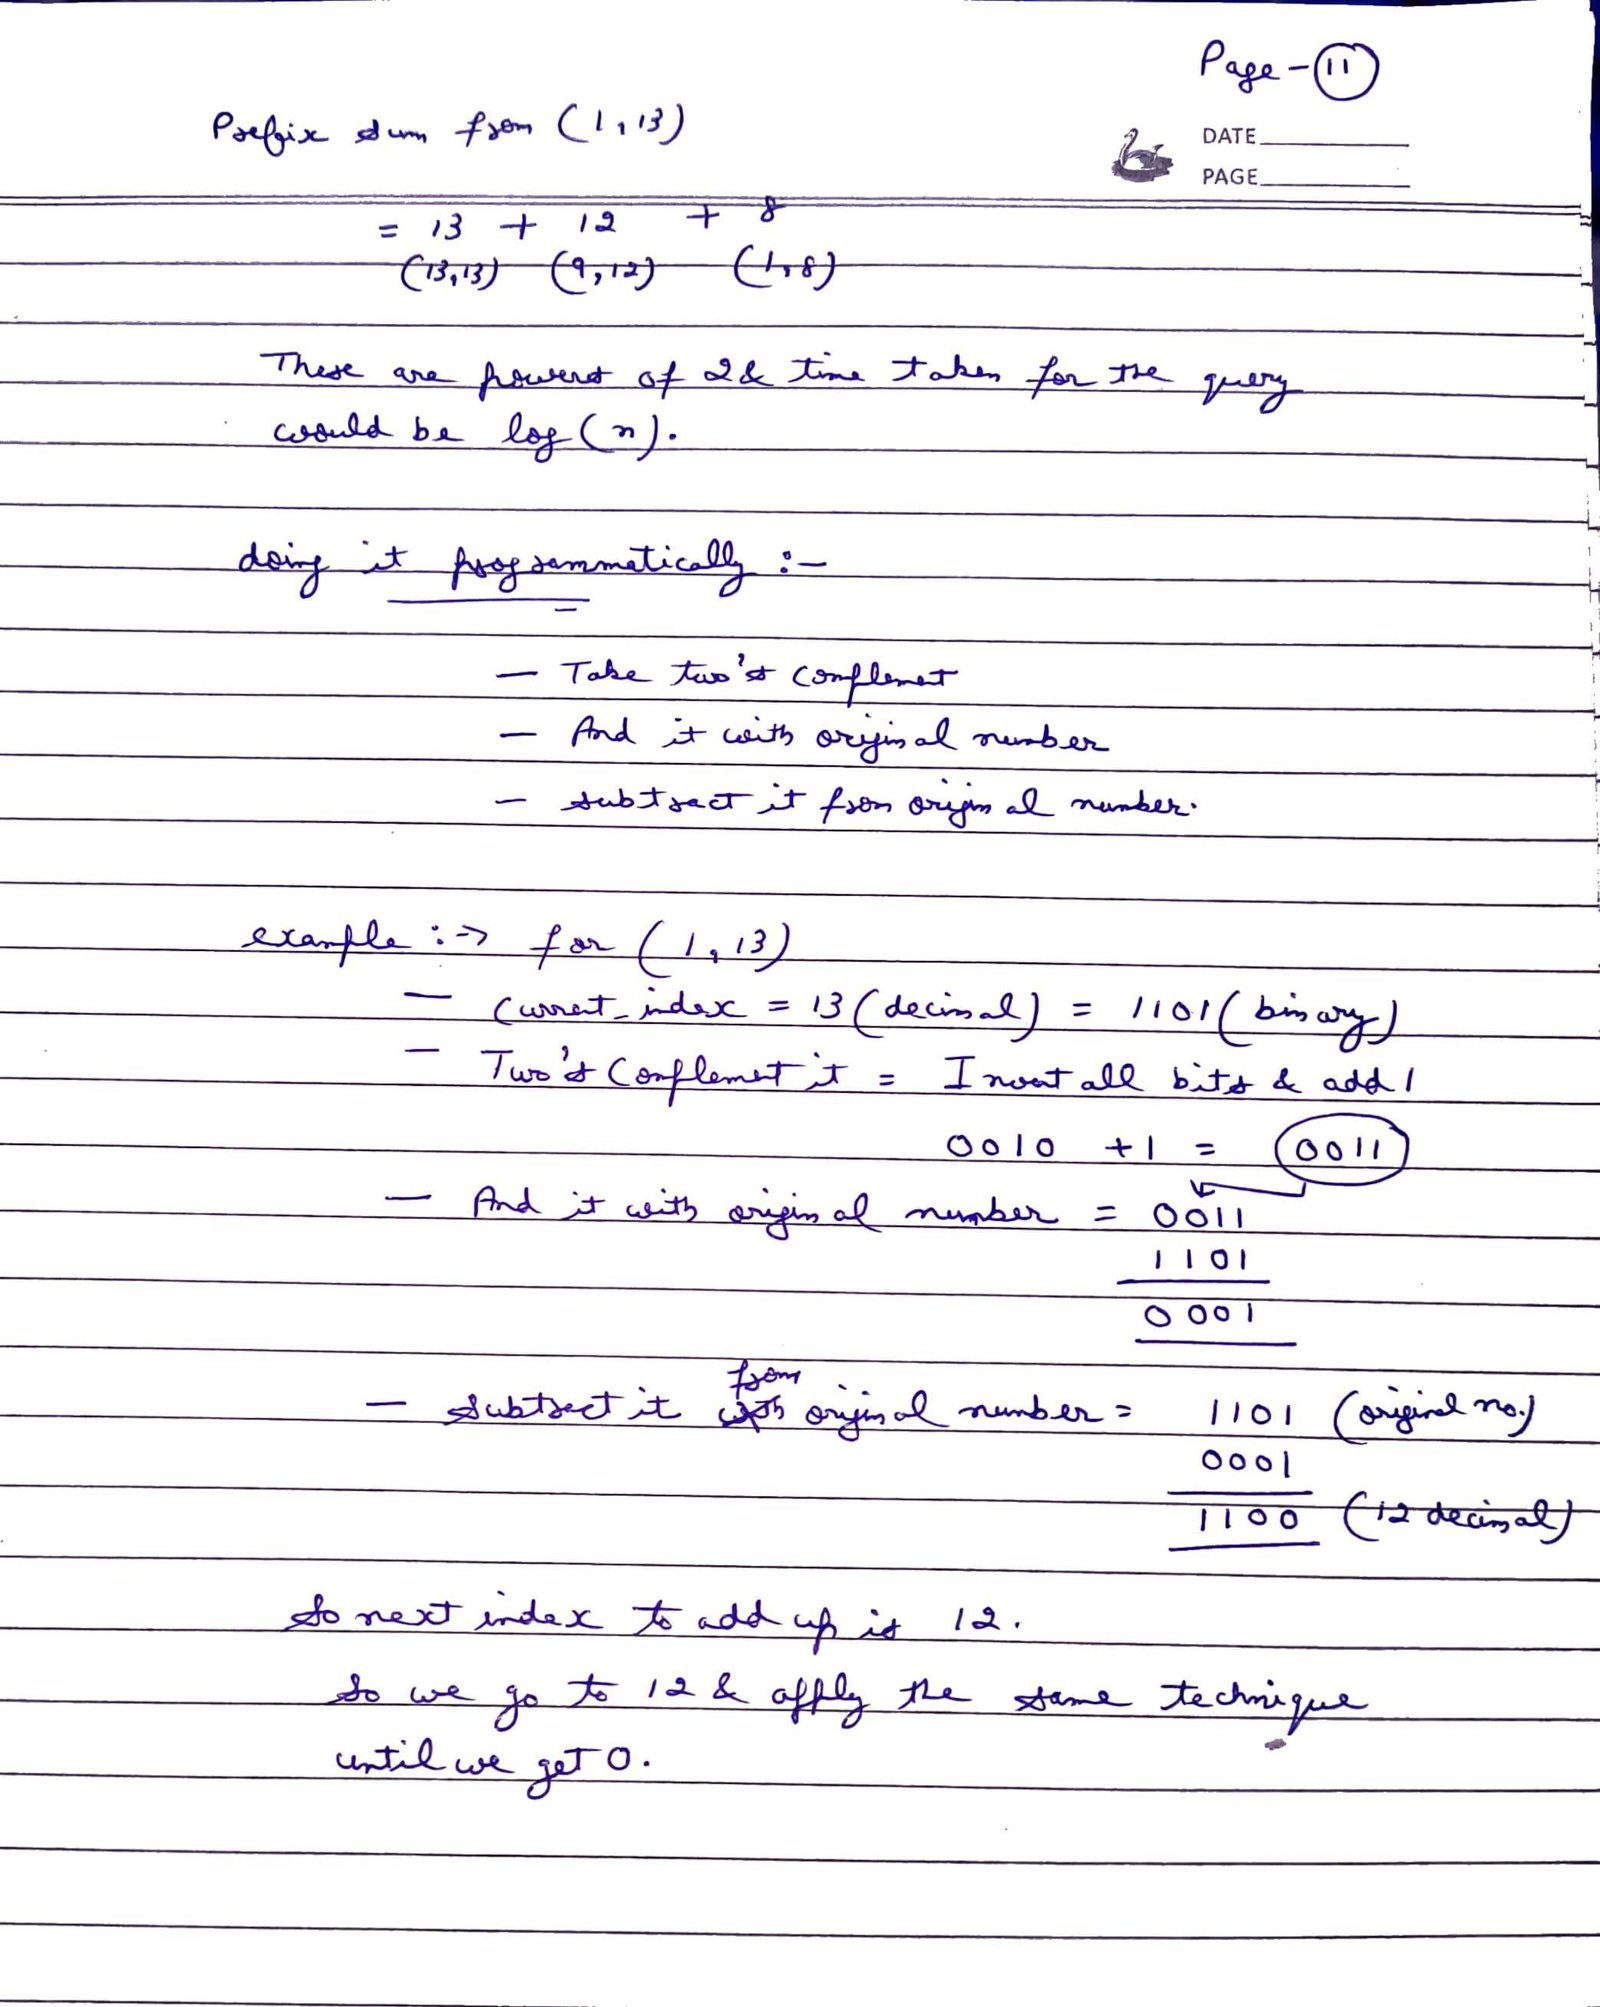 Page - 11
Prefix sum from (1,13)
DATE
PAGE
= 13 + 12 + 8
(13,13) (9,12) (1,8)
These are powers of 2 & time taken for the query
would be log(n).
doing it programmatically :-
- Take two's complement
- And it with original number
- subtract it from original number.
example :-> for (1,13)
- current_index = 13 (decimal) = 1101 (binary)
- Two's complement it = Invert all bits & add 1
0010 + 1 = 0011
- And it with original number = 0011
1101
0001
from
- subtract it original number = 1101 (original no.)
0001
1100 (12 decimal)
So next index to add up is 12.
So we go to 12 & apply the same technique
until we get 0.